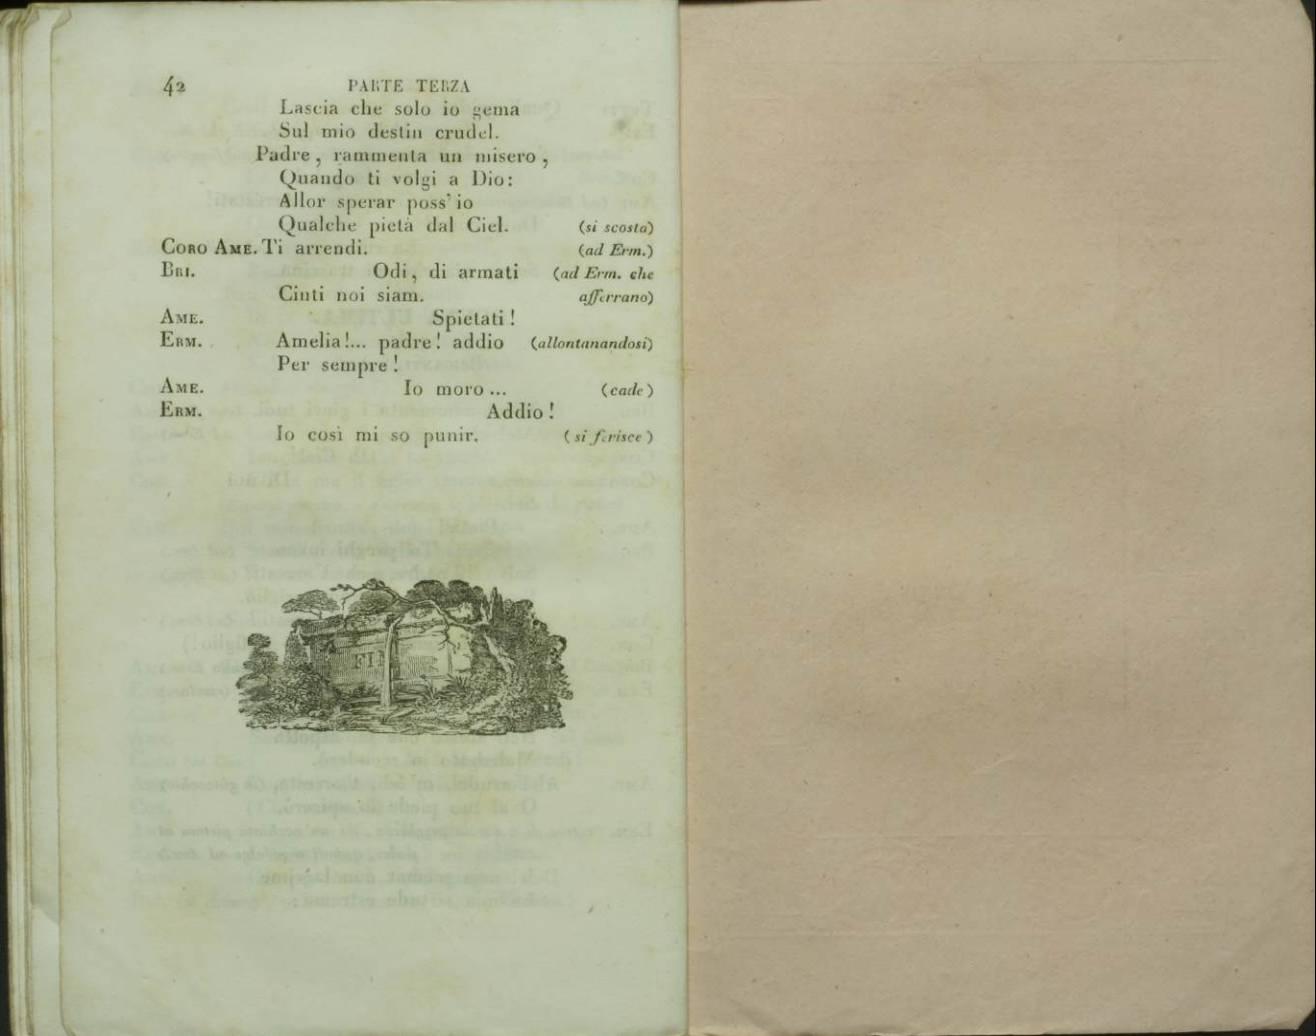 42 PARTE TERZA
Lascia che solo io gema
Sul mio destin crudel.
Padre, rammenta un misero,
Quando ti volgi a Dio:
Allor sperar poss' io
Qualche pietà dal Ciel. (si scosta)
CORO AME. Ti arrendi. (ad Erm.)
BRI. Odi, di armati (ad Erm. che
Cinti noi siam. afferrano)
AME. Spietati!
ERM. Amelia!... padre! addio (allontanandosi)
Per sempre!
AME. Io moro... (cade)
ERM. Addio!
Io così mi so punir. (si ferisce)
FIN